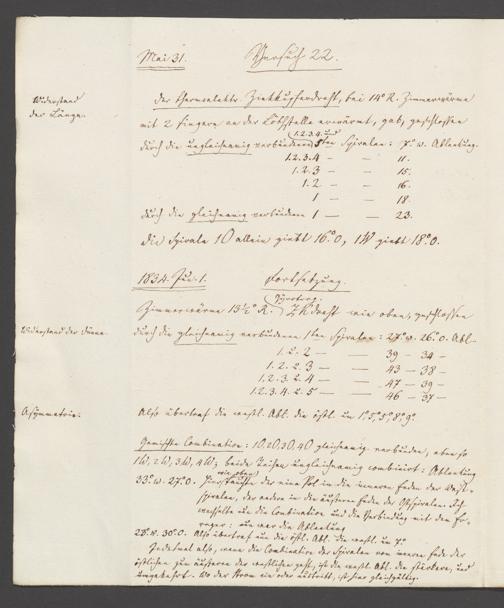 Mai 31. Versuch 22.
Widerstand
der Länge.
Der thermoelektr. Zinkkupferdraht, bei 14° R. Zimmerwärme
mit 2 Fingern an der Löthstelle erwärmt, gab, geschlossen
1.2.3.4. und
durch die ungleichnamig verbundenen 5ten Spiralen: 7° w. Ablenkung.
1.2.3.4 — — 11.
1.2.3 — — 15.
1.2 — — 16.
1 — — 18.
durch die gleichnamig verbundenen 1 — — 23.
die Spirale 1O allein giebt 16°O, 1W giebt 18°O.
1834. Jun. 1. Fortsetzung.
Zimmerwärme 13½° R. ZKdraht wie oben, geschlossen
Widerstand der Dünne.
durch die gleichnamig verbundenen 1ten Spiralen: 27° w. 26° O. Abl.
1. 2. 2 — — 39 — 34 —
1. 2. 2. 3 — — 43 — 38 —
1. 2. 3. 2. 4 — — 47 — 39 —
1. 2. 3. 4. 2. 5 — — 46 — 37 —
Asymmetrie.
Also übertraf die westl. Abl. die östl. um 1°, 5°, 5°, 8°, 9°.
Gemischte Combination: 1O, 2O, 3O, 4O gleichnamig verbunden, ebenso
1W, 2W, 3W, 4W; beide Reihen ungleichnamig combinirt: Ablenkung
wie oben
33° w. 27° O. der eine Pol in die inneren Enden der West-
spiralen, der andere in die äußeren Enden der Ostspiralen. Ich
wechselte nun die Combination und die Verbindung mit dem Er-
reger: nun war die Ablenkung
23° w. 30° O. Also übertraf nun die östl. Abl. die westl. um 7°.
Jedesmal also, wenn die Combination der Spiralen vom inneren Ende der
östlichen zum äußeren der westlichen geht, ist die westl. Abl. die stärkere, und
umgekehrt. Wo der Strom ein oder austritt, ist hier gleichgültig.